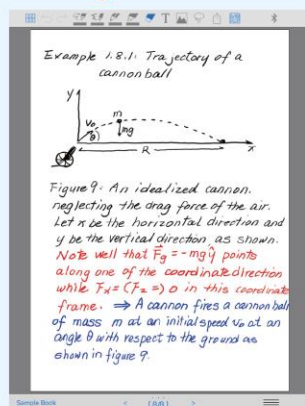 Example 1.8.1: Trajectory of a
cannonball
y
m
v₀
θ
mg
R
x
Figure 9: An idealized cannon.
neglecting the drag force of the air.
Let x be the horizontal direction and
y be the vertical direction, as shown.
Note well that F⃗g = -mgŷ points
along one of the coordinate direction
while Fx = (Fz =) 0 in this coordinate
frame. ⇒ A cannon fires a cannon ball
of mass m at an initial speed v₀ at an
angle θ with respect to the ground as
shown in figure 9.
Sample Book